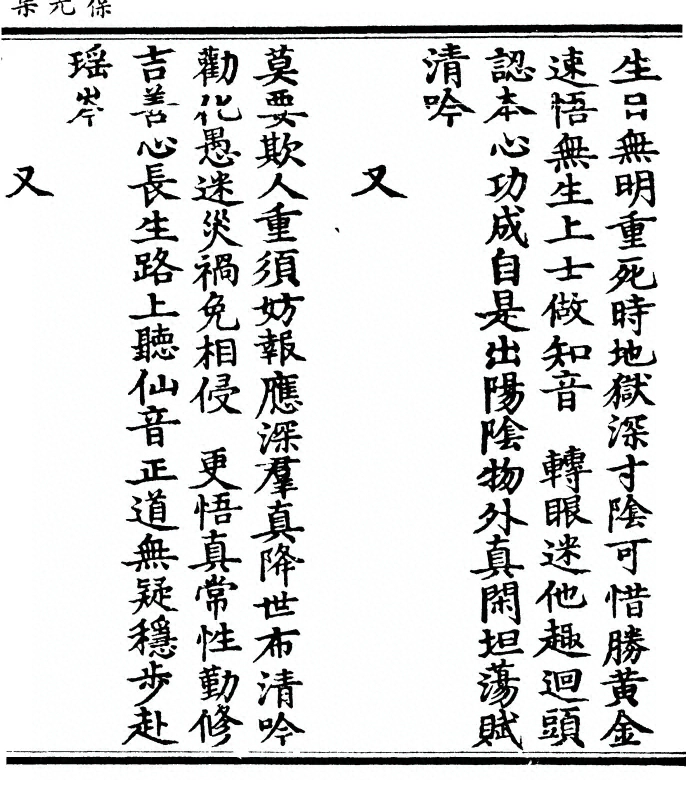 生日無明重死時地獄深寸陰可惜勝黃金
速悟無生上士做知音　轉眼迷他趣迴頭
認本心功成自是出陽陰物外真閑坦蕩賦
清吟
又
莫要欺人重須妨報應深羣真降世布清吟
勸化愚迷災禍免相侵　更悟真常性勤修
吉善心長生路上聽仙音正道無疑穩步赴
瑶岑
又